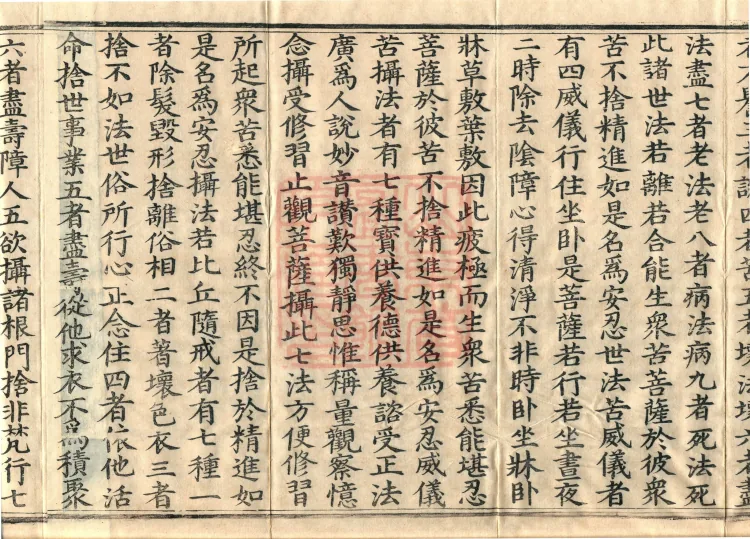 法盡七者老法老八者病法病九者死法死
此諸世法若離若合能生衆苦菩薩於彼衆
苦不捨精進如是名爲安忍世法苦威儀者
有四威儀行住坐卧是菩薩若行若坐晝夜
二時除去陰障心得清淨不非時卧坐牀卧
牀草敷葉敷因此疲極而生衆苦悉能堪忍
菩薩於彼苦不捨精進如是名爲安忍威儀
苦攝法者有七種寶供養德供養諮受正法
廣爲人說妙音讃歎獨靜思惟稱量觀察憶
念攝受修習止觀菩薩攝此七法方便修習
所起衆苦悉能堪忍終不因是捨於精進如
是名爲安忍攝法若比丘隨戒者有七種一
者除髮毀形捨離俗相二者著壞色衣三者
捨不如法世俗所行心正念住四者依他活
命捨世事業五者盡壽從他求衣不爲積聚
六者盡壽障人五欲攝諸根門捨非梵行七